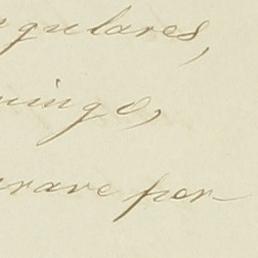 ngulares,
mingo,
grave per-